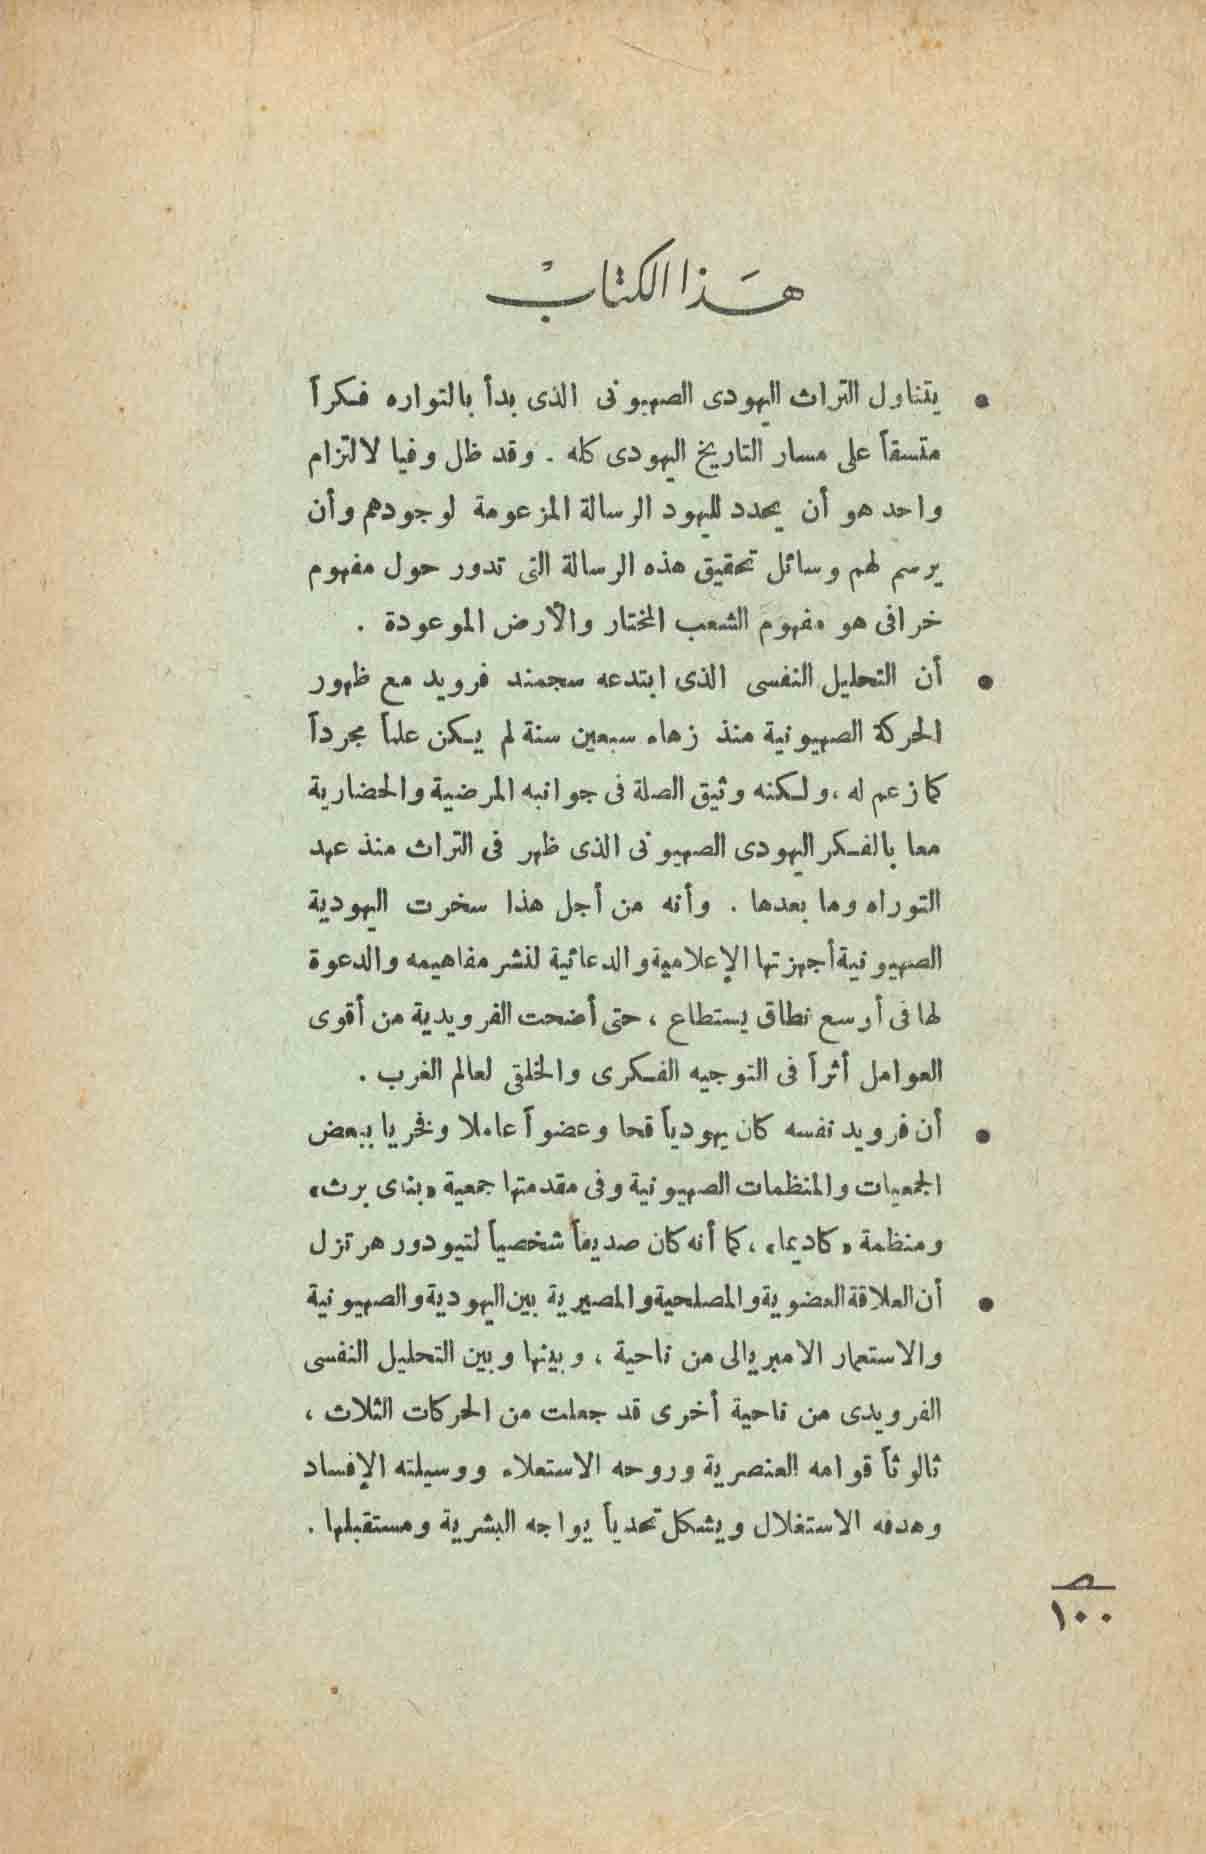 هَذا الكتابْ
• يتناول التراث اليهودى الصهيونى الذى بدأ بالتواره فكراً
متسقاً على مسار التاريخ اليهودى كله . وقد ظل وفيا لالتزام
واحد هو أن يحدد لليهود الرسالة المزعومة لوجودهم وأن
يرسم لهم وسائل تحقيق هذه الرسالة التى تدور حول مفهوم
خرافى هو مفهوم الشعب المختار والأرض الموعودة .
• أن التحليل النفسى الذى ابتدعه سجمند فرويد مع ظهور
الحركة الصهيونية منذ زهاء سبعين سنة لم يكن علماً مجرداً
كما زعم له ، ولكنه وثيق الصلة فى جوانبه المرضية والحضارية
معا بالفكر اليهودى الصهيونى الذى ظهر فى التراث منذ عهد
التوراه وما بعدها . وأنه من أجل هذا سخرت اليهودية
الصهيونية أجهزتها الإعلامية والدعائية لنشر مفاهيمه والدعوة
لها فى أرسع نطاق يستطاع ، حتى أضحت الفرويدية من أقوى
العوامل أثراً فى التوجيه الفكرى والخلقى لعالم الغرب .
• أن فرويد نفسه كان يهودياً قحا وعضواً عاملا وفخريا ببعض
الجمعيات والمنظمات الصهيونية وفى مقدمتها جمعية «بناى برث»
ومنظمة «كاديما» ، كما أنه كان صديقاً شخصياً لتيودور هرتزل
• أن العلاقة العضوية والمصلحية والمصيرية بين اليهودية والصهيونية
والاستعمار الامبريالى من ناحية ، وبينها وبين التحليل النفسى
الفرويدى من ناحية أخرى قد جعلت من الحركات الثلاث ،
ثالوثاً قوامه العنصرية وروحه الاستعلاء ووسيلته الإفساد
وهدفه الاستغلال ويشكل تحدياً يواجه البشرية ومستقبلها .
١٠٠